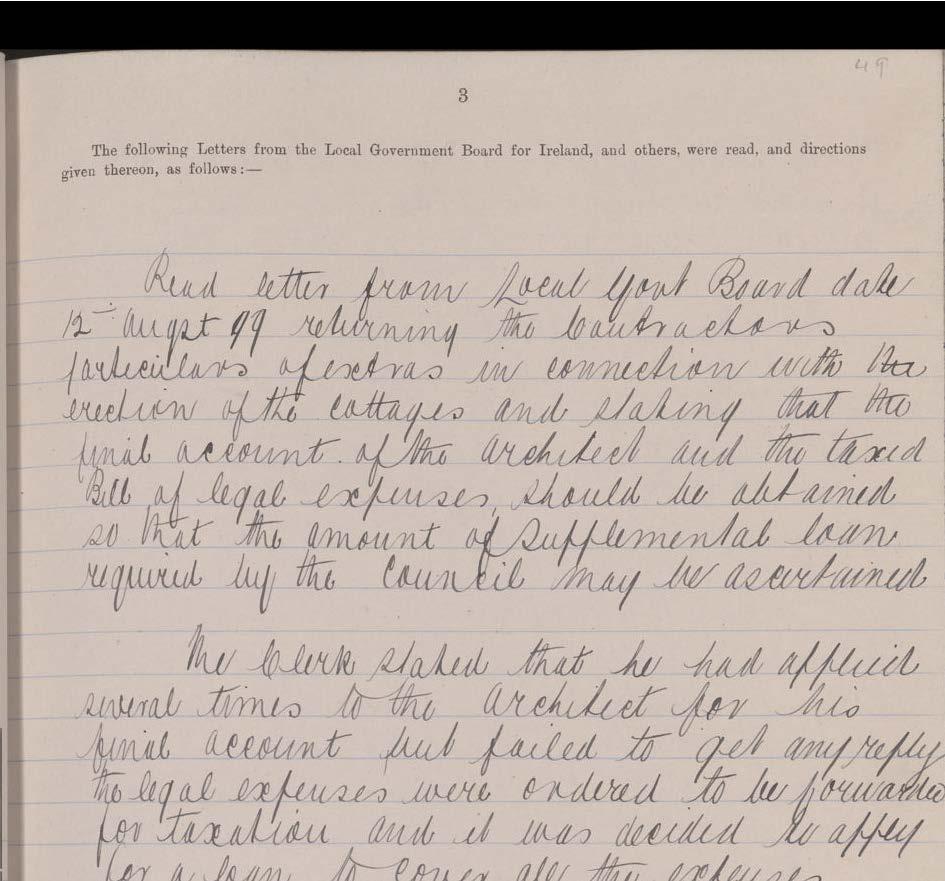 49
3
The following Letters from the Local Government Board for Ireland, and others, were read, and directions
given thereon, as follows:—
Read letter from Local Govt Board date
12th Augst 99 returning the Contractors
particulars of extras in connection with the
erection of the cottages and stating that the
final account of the Architect and the taxed
Bill of legal expenses, should be obtained
so that the amount of Supplemental loan
required by the Council may be ascertained
The Clerk stated that he had applied
several times to the Architect for his
final account but failed to get any reply
the legal expenses were ordered to be forwarded
for taxation and it was decided to apply
for a loan to cover all the expenses